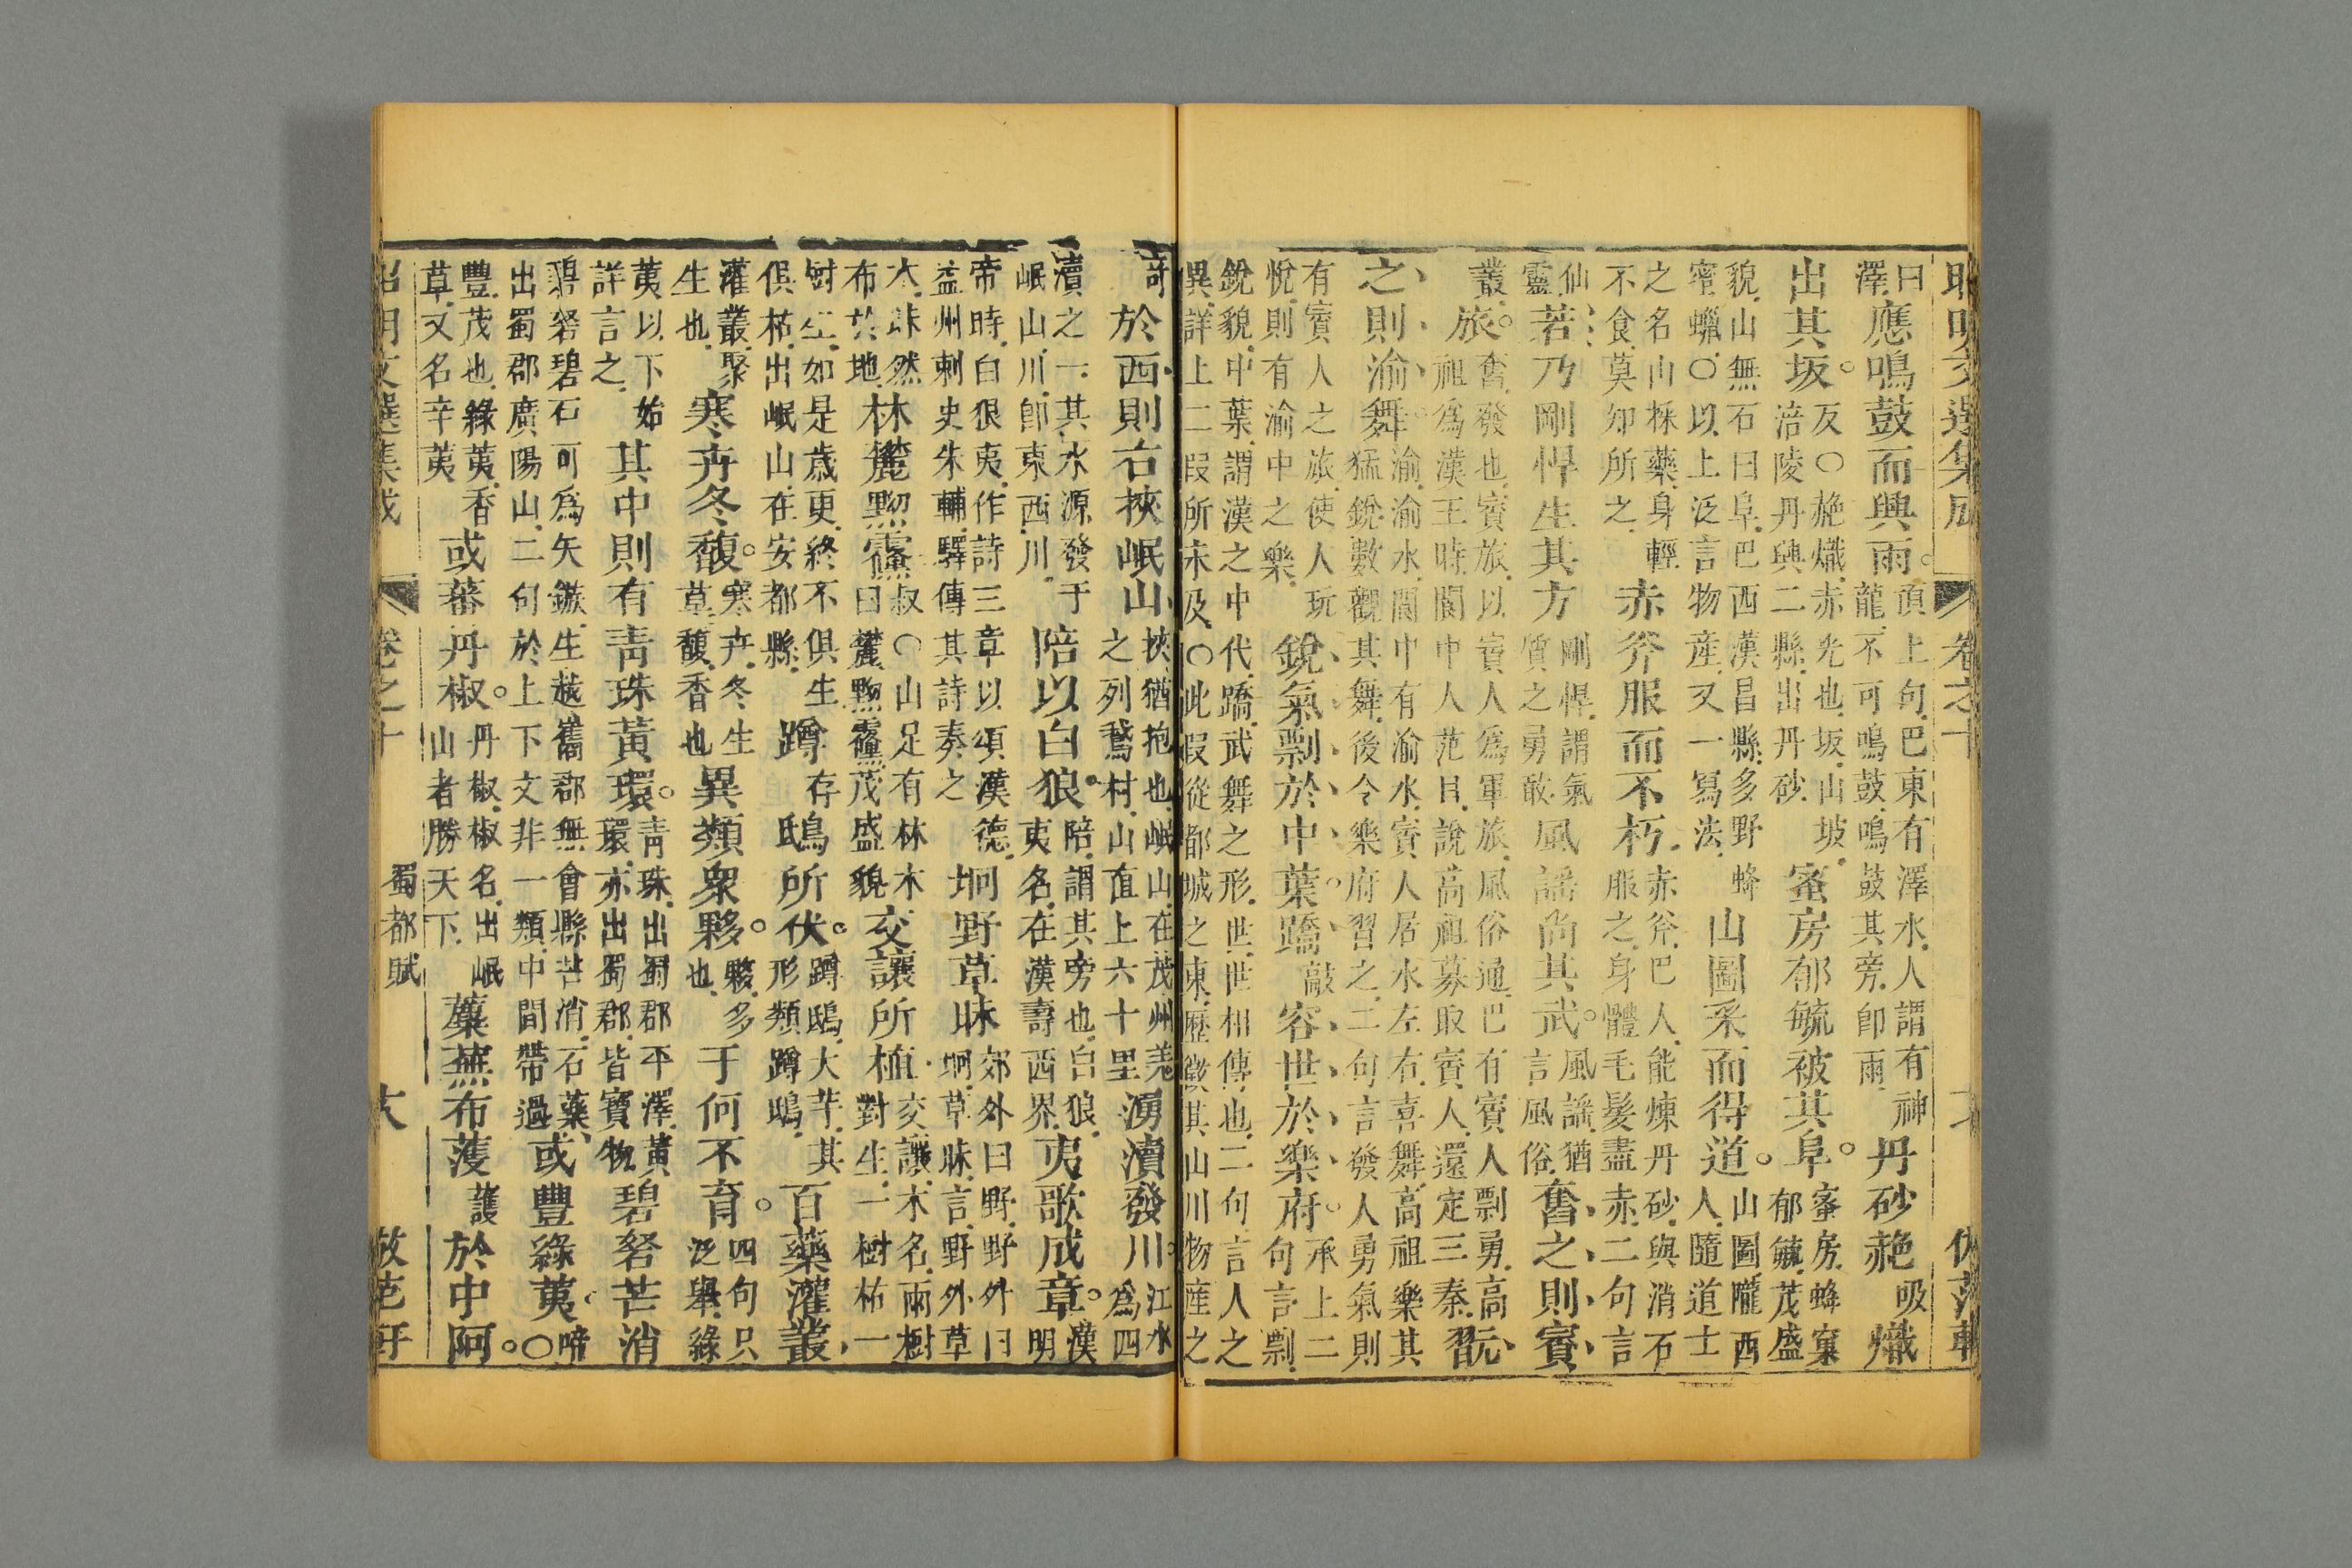 昭明文選集成 卷之十 倣范軒
曰澤應鳴鼓而興雨。頂上句巴東有澤水人謂有神龍不可鳴鼓鳴鼓其旁卽雨丹砂赩吸熾
出其坂。反〇赩熾赤光也坂山坡涪陵丹興二縣出丹砂蜜房郁毓被其阜。蜜房蜂窠郁毓茂盛
貌山無石曰阜巴西漢昌縣多野蜂窑蠟〇以上泛言物產又一寫法山圖采而得道。山圖隴西人隨道士
之名山採藥身輕不食莫知所之赤斧服而不朽赤斧巴人能煉丹砂與消石服之身體毛髮盡赤二句言
仙靈若乃剛悍生其方剛悍謂氣質之勇敢風謠尚其武。風謠猶言風俗奮之則賨
叢旅。奮發也賨旅以賨人爲軍旅風俗通巴有賨人剽勇高祖爲漢王時閬中人范目說高祖募取賨人還定三秦翫
之則渝舞。渝渝水閬中有渝水賨人居水左右喜舞高祖樂其猛銳數觀其舞後令樂府習之二句言發人勇氣則
有賨人之旅使人玩悅則有渝中之樂銳氣剽於中葉。蹻敲容世於樂府。承上二句言剽
銳貌中葉謂漢之中代蹻武舞之形世世相傳也二句言人之異詳上二段所未及〇此段從都城之東歷敘其山川物產之
奇於西則右挾岷山挾猶抱也岷山在茂州羌之列鵞村山直上六十里湧瀆發川。江水爲四
瀆之一其水源發于岷山川卽東西川陪以白狼。陪謂其旁也白狼夷名在漢壽西界夷歌成章。漢明
帝時白狼夷作詩三章以頌漢德益州刺史朱輔驛傳其詩奏之坰野草昧郊外曰野野外曰坰草昧言野外草
木昧然布於地林麓黝儵叔〇山足有林木曰麓黝儵茂盛貌交讓所植交讓木名兩樹對生一樹枯一
樹生如是歲更終不俱生俱枯出岷山在安都縣蹲存鴟鴟所伏。蹲鴟大芋其形類蹲鴟百藥灌叢
灌叢聚生也寒卉冬馥。寒卉冬生草馥香也異類衆夥。夥多也于何不育。四句只泛舉綠
荑以下始詳言之其中則有青珠黃環。青珠出蜀郡平澤黃環亦出蜀郡皆寶物碧砮芒消
碧砮碧石可爲矢鏃生越巂郡無會縣芒消石藥出蜀郡廣陽山二句於上下文非一類中間帶過或豐綠荑。啼〇
豐茂也綠荑香草又名辛荑或蕃丹椒。丹椒椒名出岷山者勝天下蘪蕪布濩護於中阿。
昭明文選集成 卷之十 蜀都賦 倣范軒